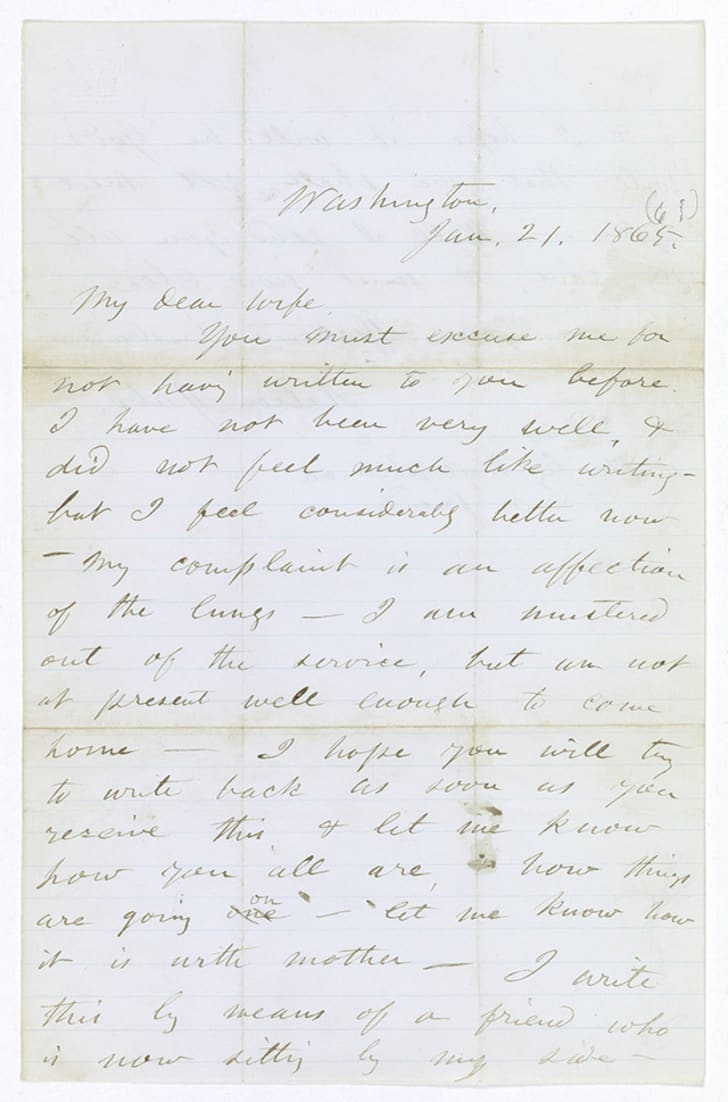 Washington,
(6?)
Jan. 21. 1865.
My dear wife,
You must excuse me for
not havg written to you before.
I have not been very well, &
did not feel much like writing –
but I feel considerably better now
– My complaint is an affection
of the lungs – I am mustered
out of the service, but am not
at present well enough to come
home – I hope you will try
to write back as soon as you
receive this & let me know
how you all are, how things
are going on – let me know how
it is with mother – I write
this by means of a friend who
is now sittg by my side –